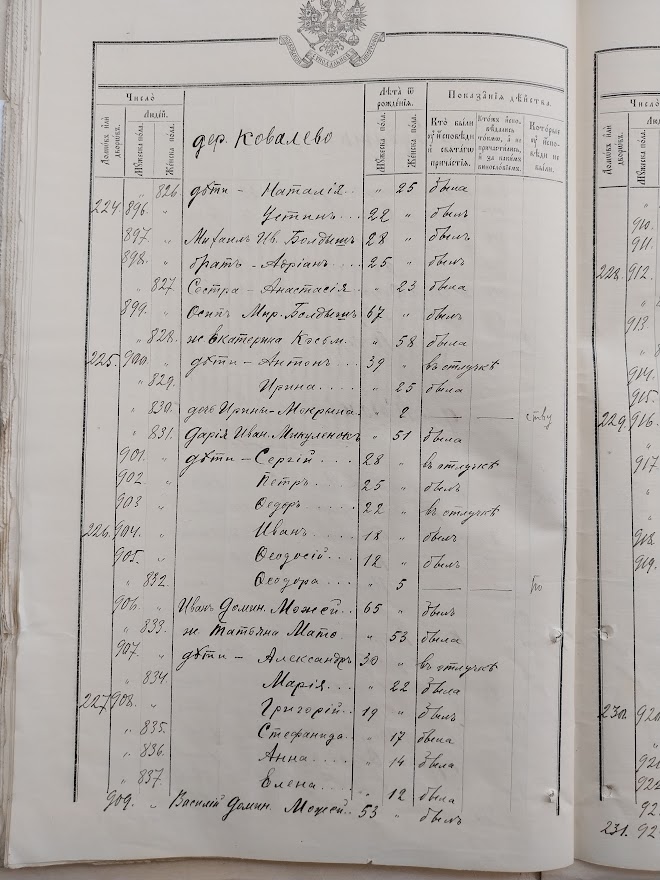 Число̀
Людїй.
Домѡвъ и҆лѝ дворѡвъ.
Мꙋжеска по́ла.
Женска по́ла.
дер. Ковалево
Лѣ́та ѿ рожде́нїя.
Мꙋжеска по́ла.
Женска по́ла.
Показа̑нїѧ дѣ́йства.
Кто̀ бы́ли ᲂу҆ и҆сповѣди и҆ свѧта́гѡ прича́стїѧ.
Кото́рые ᲂу҆ и҆сповѣди не бы́ли.
„ 826. дѣти - Наталія.. „ 25 была
224. 896. „ Устинъ... 22 „ былъ
897. „ Михаилъ Ив. Болдышъ 28 „ былъ
898. „ братъ - Адріанъ.... 25 „ былъ
„ 827 Сестра - Анастасія.. „ 23 была
899. „ Осипъ Мир. Болдышъ 67 „ былъ
„ 828. ж Екатерина Косьм. „ 58 была
225. 900. дѣти - Антонъ... 39 „ въ отлучкѣ
„ 829. Ирина.... „ 25 была
„ 830. дочь Ирины - Мокрына. „ 2 — — ству
„ 831. Дарія Иван. Микуленокъ „ 51 была
901. „ дѣти - Сергій.... 28 „ въ отлучкѣ
902. „ Петръ.... 25 „ былъ
903 „ Ѳедоръ... 22 „ въ отлучкѣ
226. 904. „ Иванъ.... 18 „ былъ
905. „ Ѳеодосій.. 12 „ былъ
„ 832. Ѳеодора... „ 5 — —
906. „ Иванъ Домин. Можей.. 65 „ былъ
„ 833. ж Татьяна Мато. „ 53 была
907. „ дѣти - Александръ 30 „ въ отлучкѣ
„ 834. Марія... „ 22 была
227 908. „ Григорій.. 19 „ былъ
„ 835. Стефанида. „ 17 была
„ 836. Анна.... „ 14 была
„ 837. Елена.... „ 12 была
909. „ Василій Домин. Можей.. 53 „ былъ
Число̀
Домѡвъ и҆лѝ дворѡвъ.
Мꙋжеска по́ла.
910.
911.
228. 912.
913.
914.
915.
229. 916.
917
918.
919.
230.
231.